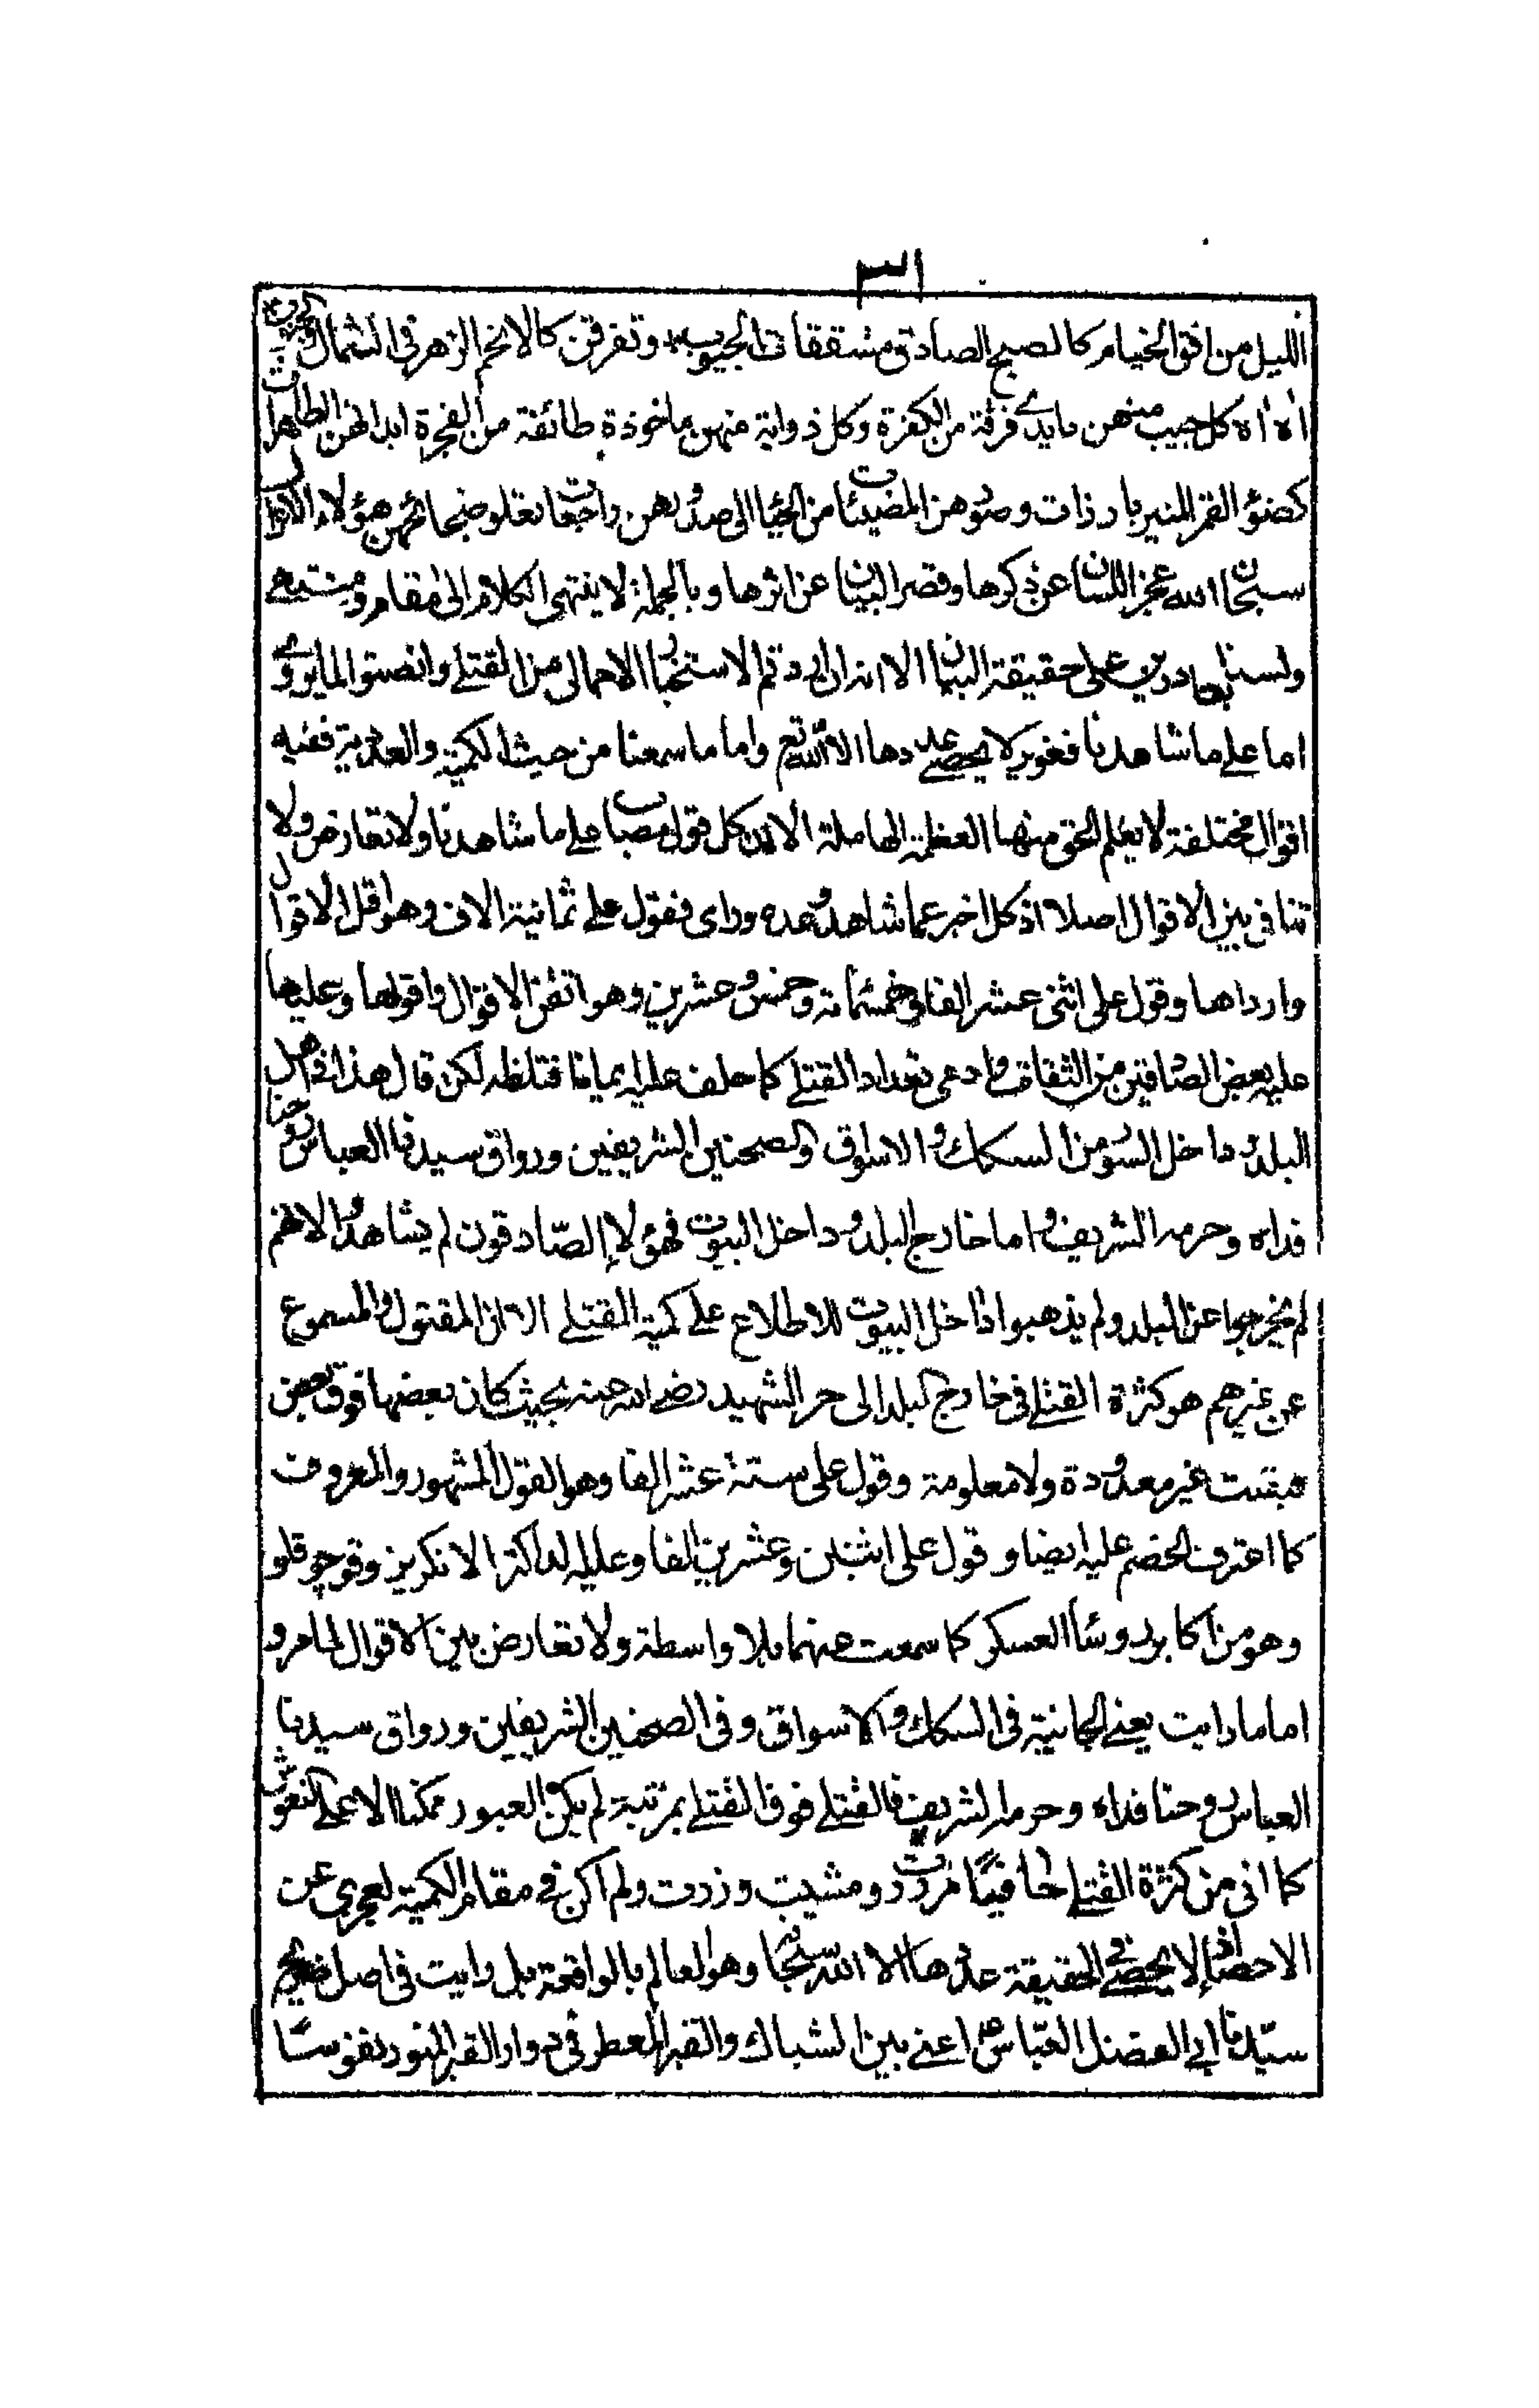 ٣١
الليل من افق الخيام كالصبح الصادق مشققات الجيوب وتفرقن كالانجم الزهر في الشمال والجنوب
اه اه كل جيب منهن بايدي فرقة من الكفرة وكل ذوابة منهن ماخوذة طائفة من الفجرة ابدانهن الطاهرات
كضوء القمر المنير بارزات ووجوههن المضيئات من الحياء الى صدورهن راجعات تعلو ضجاتهن هؤلاء
سبحان الله عجز اللسان عن ذكرها وقصر البيان عن اثرها وبالجملة لا ينتهي الكلام الى مقام ومنتهى
ولسنا بقادرين على حقيقة البيان الا انه ان اردتم الاستخبار الاجمالي من القتلى وانصتوا لما يروى
اما على ما شاهدنا فغير لا يحصى عددها الا الله تع واما ما سمعنا من حيث الكمية والعددية ففيه
اقوال مختلفة لا يعلم الحق منها العظمة الهاملة الا ان كل قول مصاب على ما شاهدنا ولا تعارض ولا
تنافي بين الاقوال اصلا اذ كل اخبر عما شاهده وعده وراى فقول على ثمانية الاف وهو اقل الاقوال
وارداها وقول على اثنى عشر الفا وخمسمائة وخمس وعشرين وهو اتقن الاقوال واقولها وعليها
عليه بعض الصادقين من الثقات وادعى تعداد القتلى كما حلف عليه ايمانا مغلظه لكن قال هذا في اصل
البلد وداخل السور من السكك والاسواق والصحنين الشريفين ورواق سيدنا العباس روحنا
فداه وحرمه الشريف واما خارج البلد وداخل البيوت فهؤلاء الصادقون لم يشاهدوا لانهم
لم يخرجوا عن البلد ولم يذهبوا داخل البيوت للاطلاع على كمية القتلى الا ان المقتول والمسموع
عن غيرهم هو كثرة القتلى في خارج البلد الى حر الشهيد رضي الله عنه بحيث كان بعضها فوق بعض
فبقيت غير معدودة ولا معلومة وقول على ستة عشر الفا وهو القول المشهور والمعروف
كما اعترف الخصم عليه ايضا وقول على اثنين وعشرين الفا وعليه لداكتر الانكريز وقوجو قلو
وهو من اكابر روساء العسكر كما سمعت عنهما بلا واسطة ولا تعارض بين الاقوال لما مر و
اما ما رايت يعني الجانية في السكك والاسواق وفي الصحنين الشريفين ورواق سيدنا
العباس روحنا فداه وحرمه الشريف فالقتلى فوق القتلى بمرتبة لم يكن العبور ممكنا الا على النعوش
كما اني من كثرة القتلى حافيا مررت ومشيت وزرت ولم اكن في مقام الكمية لعجزي عن
الاحصاء اذ لا يحصى في الحقيقة عدها الا الله سبحانه وهو العالم بالواقعة بل رايت في اصل ضريح
سيدنا ابي الفضل العباس ع اعني بين الشباك والقبر المعطر في دوار القبر المنور نفوسا